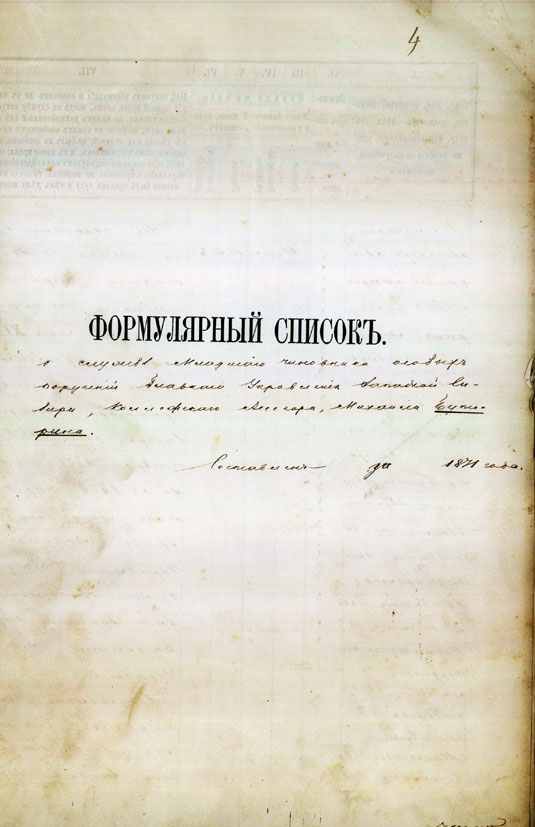 4
ФОРМУЛЯРНЫЙ СПИСОКЪ.
о службѣ Младшаго чиновника особыхъ
порученій Главнаго Управленія Западной Си-
бири, Коллежскаго Ассесора, Михаила
Составленъ за 1871 года.